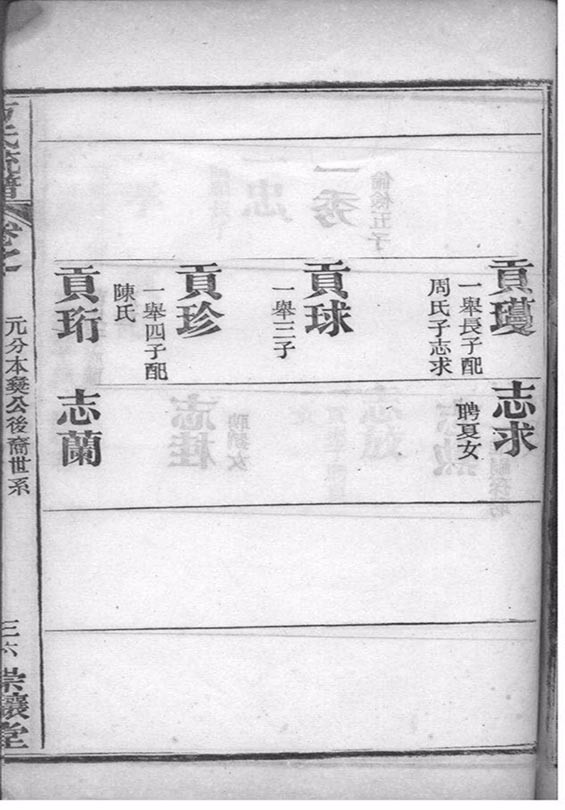 貢璦
一舉長子配
周氏子志求
志求
聘夏女
貢球
一舉三子
貢珍
一舉四子配
陳氏
貢珩
志蘭
氏統譜
卷之
元分本燮公後裔世系
三六
崇讓堂